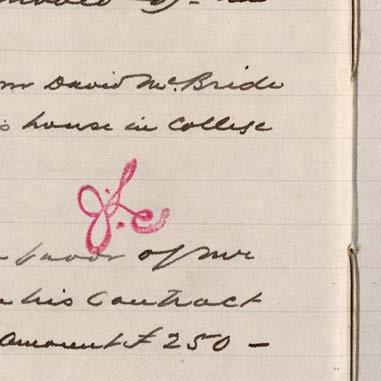 David McBride
house in College
J.L.C
favor of Mr
his Contract
Amount £ 250 -